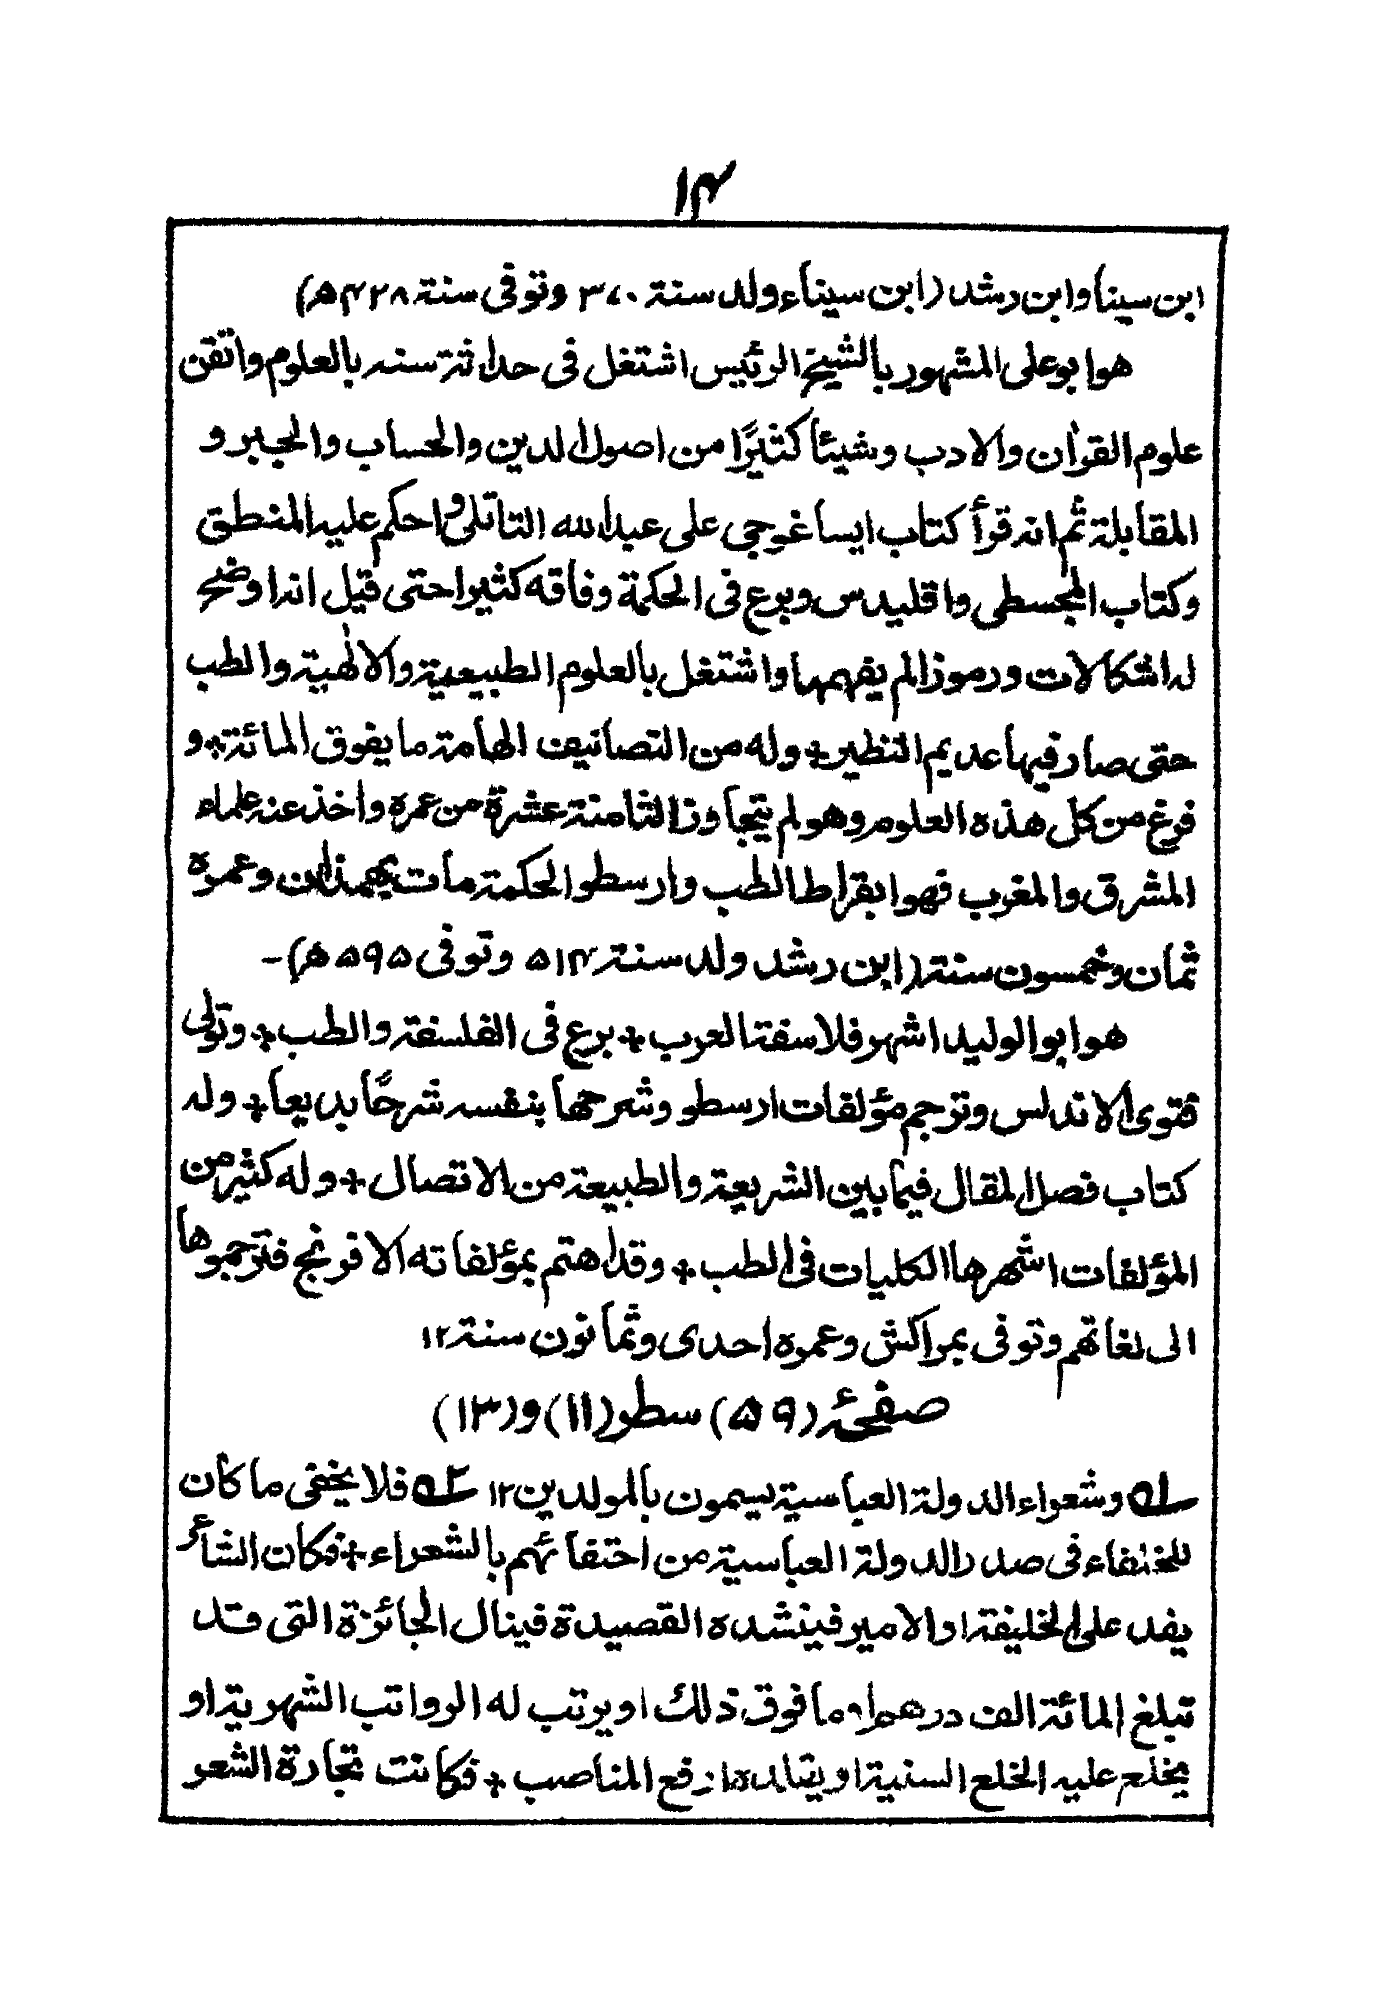 ۱۴
ابن سینا وابن رشد (ابن سیناء ولد سنة ۳۷۰ وتوفی سنة ۴۲۸ھ)
هو ابو علی المشهور بالشیخ الرئیس اشتغل فی حداثة سنه بالعلوم واتقن
علوم القرآن والادب وشیئا کثیرًا من اصول الدین والحساب والجبر و
المقابلة ثم انه قرأ کتاب ایساغوجی علی عبد الله التاتلی واحکم علیه المنطق
وکتاب المجسطی واقلیدس وبرع فی الحکمة وفاقه کثیرا حتی قیل انه اوضح
له اشکالات ورموزا لم یفهمها واشتغل بالعلوم الطبیعیة والالٰهیة والطب
حتی صار فیها عدیم النظیر + وله من التصانیف الهامة ما یفوق المائة + و
فرغ من کل هذه العلوم وهو لم یتجاوز الثامنة عشرة من عمره واخذ عنه علماء
المشرق والمغرب فهو ابقراط الطب وارسطو الحکمة مات بهمذان وعمره
ثمان وخمسون سنة (ابن رشد ولد سنة ۵۱۴ وتوفی ۵۹۵ھ)۔
هو ابو الولید اشهر فلاسفة العرب + برع فی الفلسفة والطب + وتولی
فتوی الاندلس وترجم مؤلفات ارسطو وشرحها بنفسه شرحًا بدیعا + وله
کتاب فصل المقال فیما بین الشریعة والطبیعة من الاتصال + وله کثیر من
المؤلفات اشهرها الکلیات فی الطب + وقد اهتم بمؤلفاته الافرنج فترجموها
الی لغاتهم وتوفی بمراکش وعمره احدی وثمانون سنة ۱۲
صفحۂ (۵۹) سطر (۱۱) و (۱۳)
۱ه وشعراء الدولة العباسیة یسمون بالمولدین ۱۲ ۲ه فلا یخفی ما کان
للخلفاء فی صدر الدولة العباسیة من احتفائهم بالشعراء + فکان الشاعر
یفد علی الخلیفة او الامیر فینشده القصیدة فینال الجائزة التی قد
تبلغ المائة الف درهم او ما فوق ذلك او یرتب له الرواتب الشهریة او
یخلع علیه الخلع السنیة او یقلده ارفع المناصب + فکانت تجارة الشعر